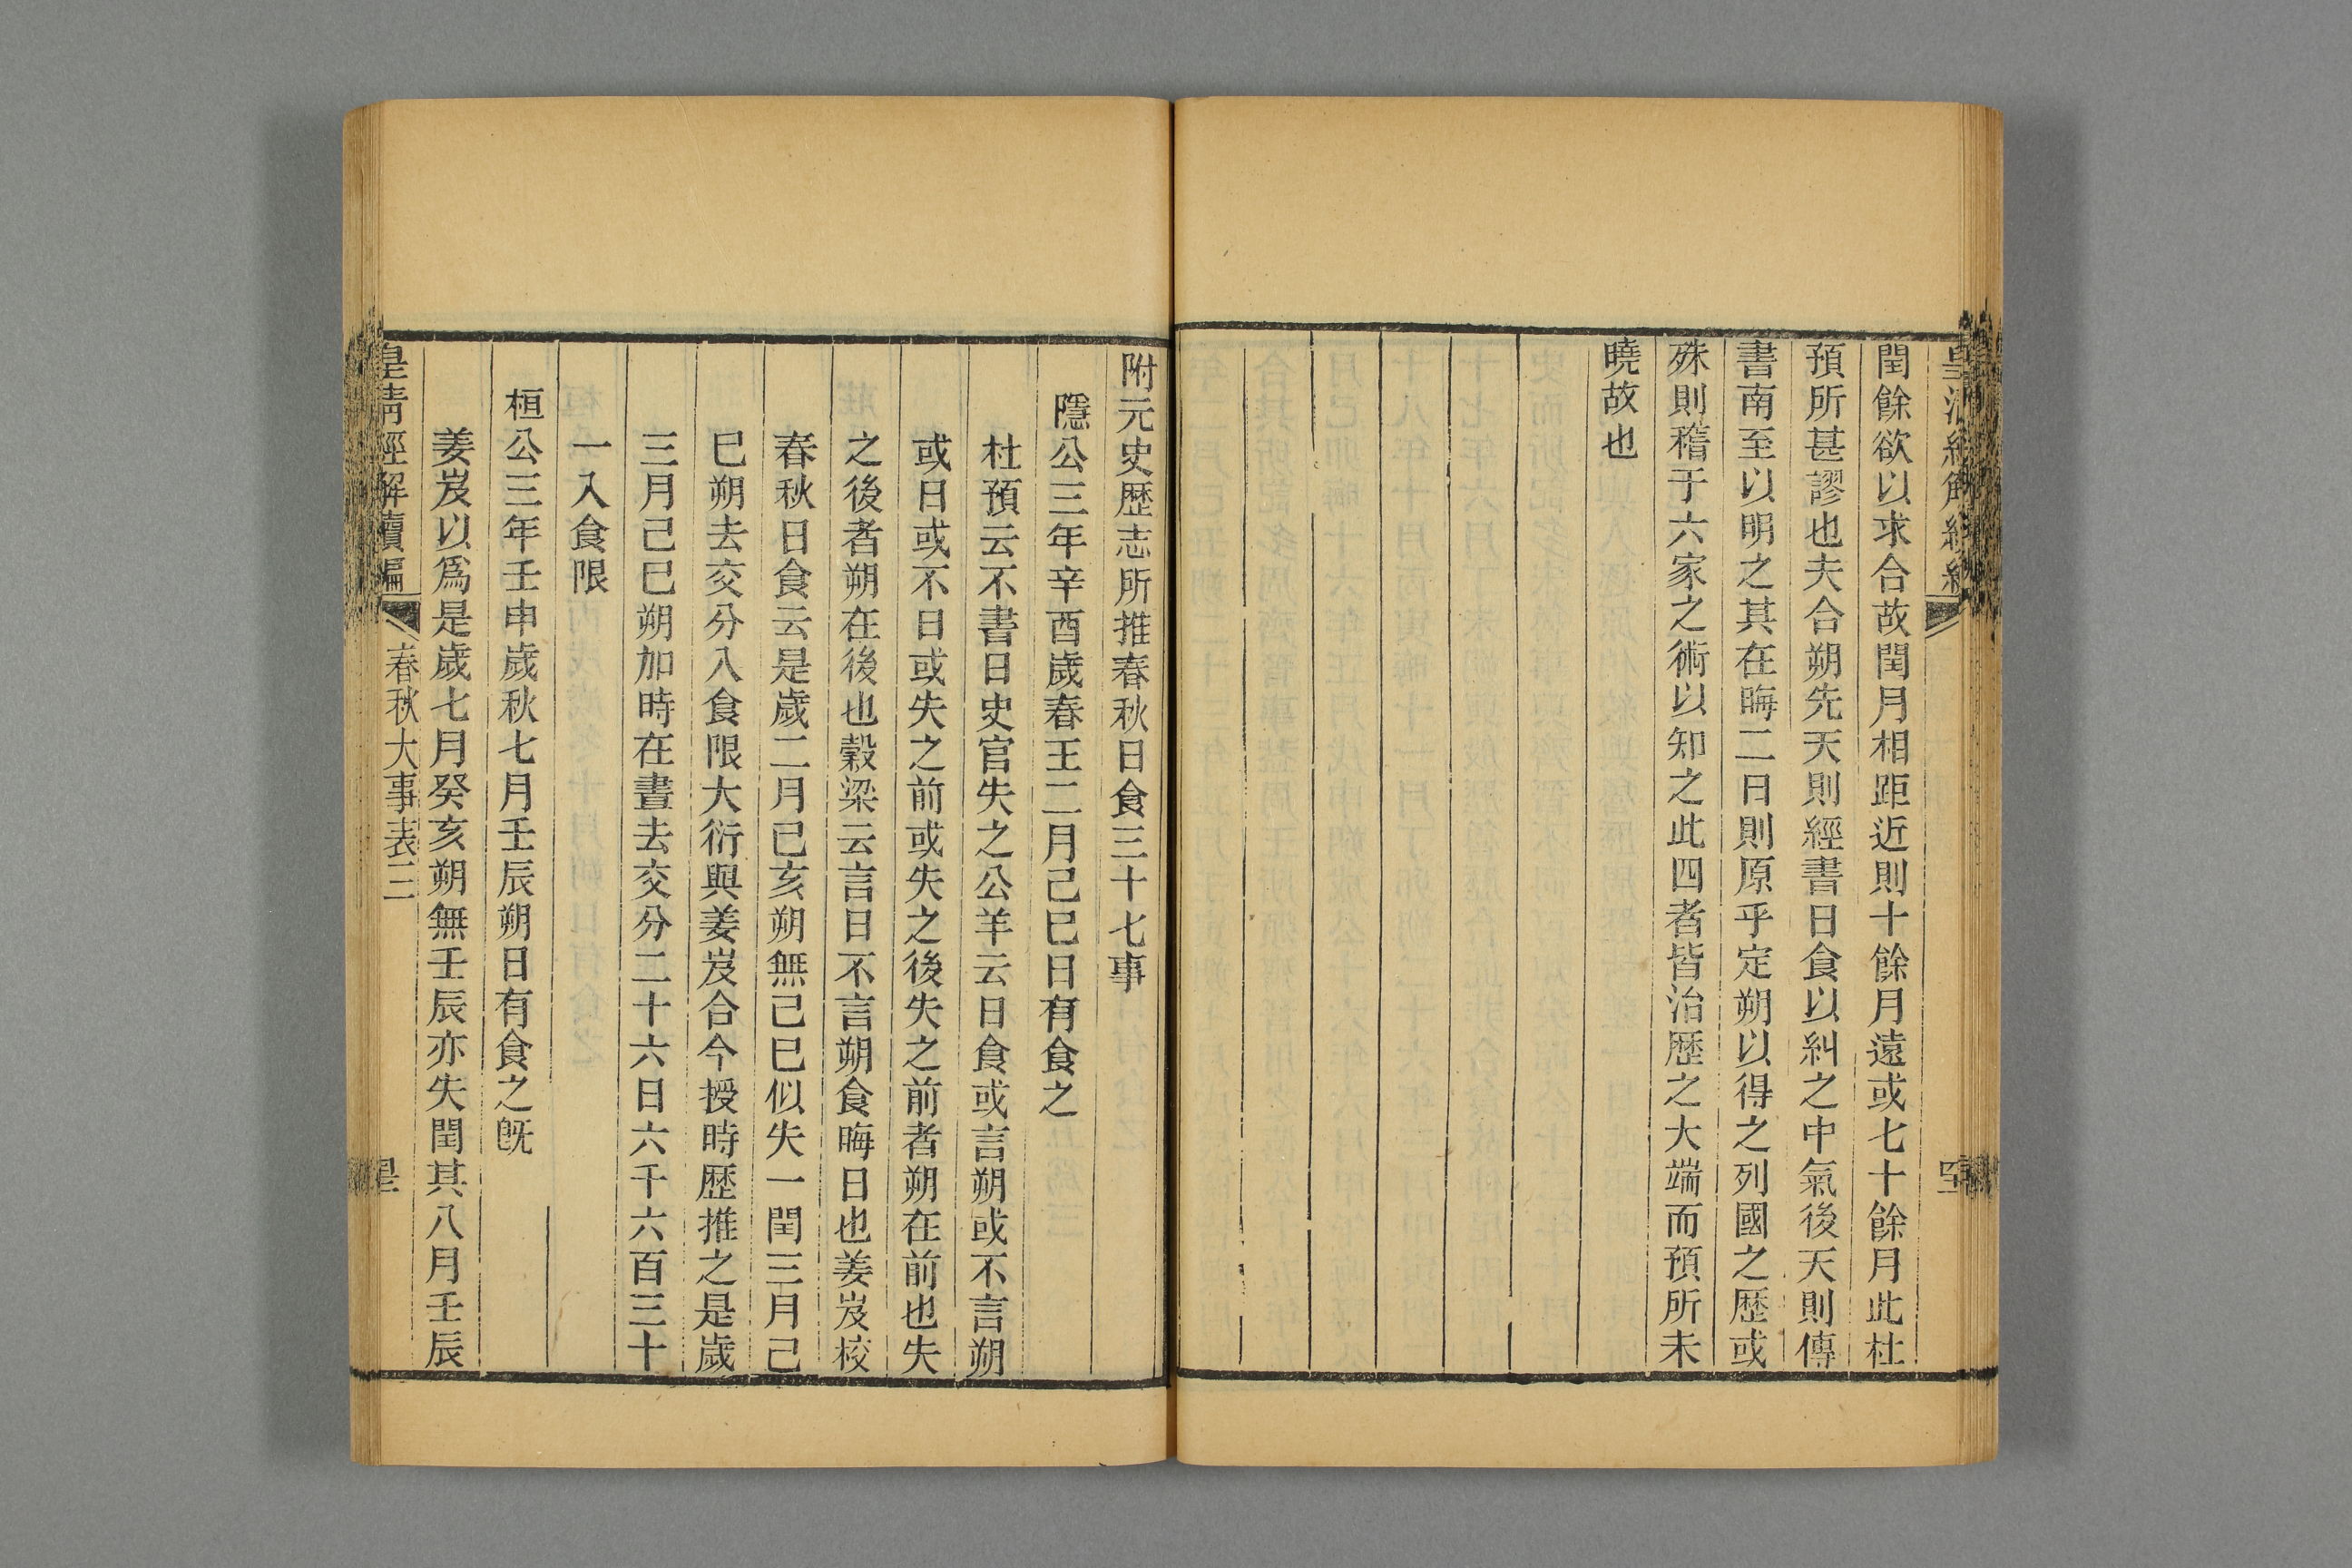 閏餘欲以求合故閏月相距近則十餘月遠或七十餘月此杜
預所甚謬也夫合朔先天則經書日食以糾之中氣後天則傳
書南至以明之其在晦二日則原乎定朔以得之列國之歷或
殊則稽于六家之術以知之此四者皆治歷之大端而預所未
曉故也
附元史歷志所推春秋日食三十七事
隱公三年辛酉歲春王二月己巳日有食之
杜預云不書日史官失之公羊云日食或言朔或不言朔
或日或不日或失之前或失之後失之前者朔在前也失
之後者朔在後也穀梁云言日不言朔食晦日也姜岌校
春秋日食云是歲二月己亥朔無己巳似失一閏三月己
巳朔去交分入食限大衍與姜岌合今授時歷推之是歲
三月己巳朔加時在晝去交分二十六日六千六百三十
一入食限
桓公三年壬申歲秋七月壬辰朔日有食之旣
姜岌以爲是歲七月癸亥朔無壬辰亦失閏其八月壬辰
皇清經解續編 春秋大事表三